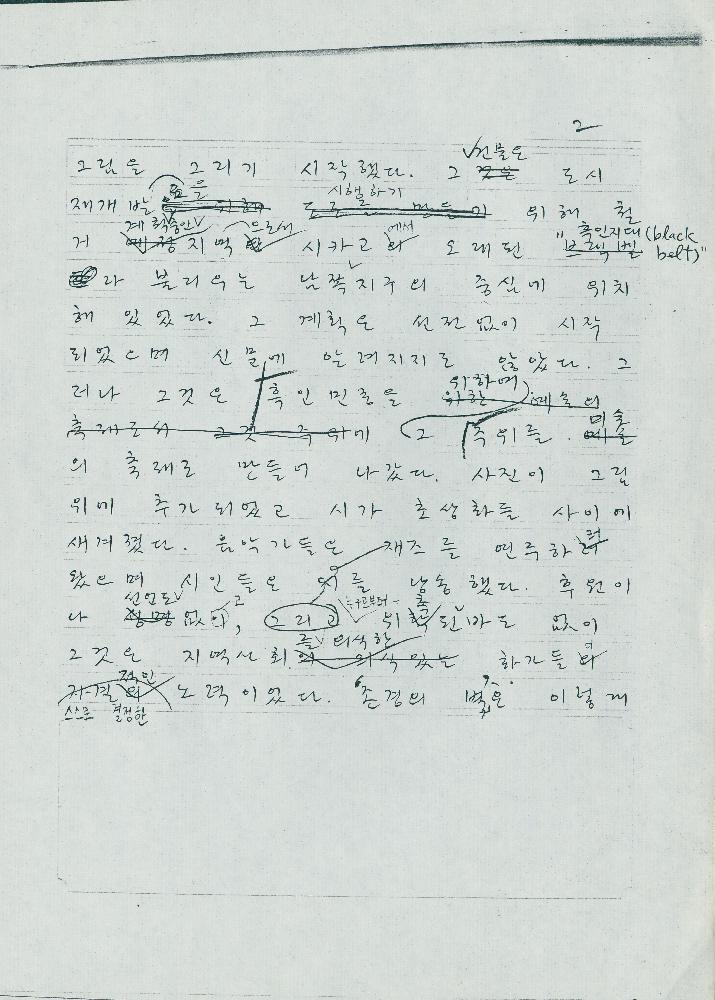 2
그림을 그리기 시작했다. 그 건물은 도시
재개발을 시행하기 위해 철
거 계획중인 지역으로서 시카고에서 오래된 "흑인지대(black belt)"
라 불리우는 남쪽지구의 중심에 위치
해 있었다. 그 계획은 선전없이 시작
되었으며 신문에 알려지지도 않았다. 그
러나 그것은 흑인민중을 위하여
그 주위를 미술
의 축제로 만들어 나갔다. 사진이 그림
위에 추가되었고 시가 초상화들 사이에
새겨졌다. 음악가들은 재즈를 연주하러
왔으며 시인들은 시를 낭송했다. 후원이
나 선언도 없고, 누구로부터 위촉된바도 없이
그것은 지역사회를 의식한 화가들의
스스로 결정한 노력이었다. '존경의 벽'은 이렇게